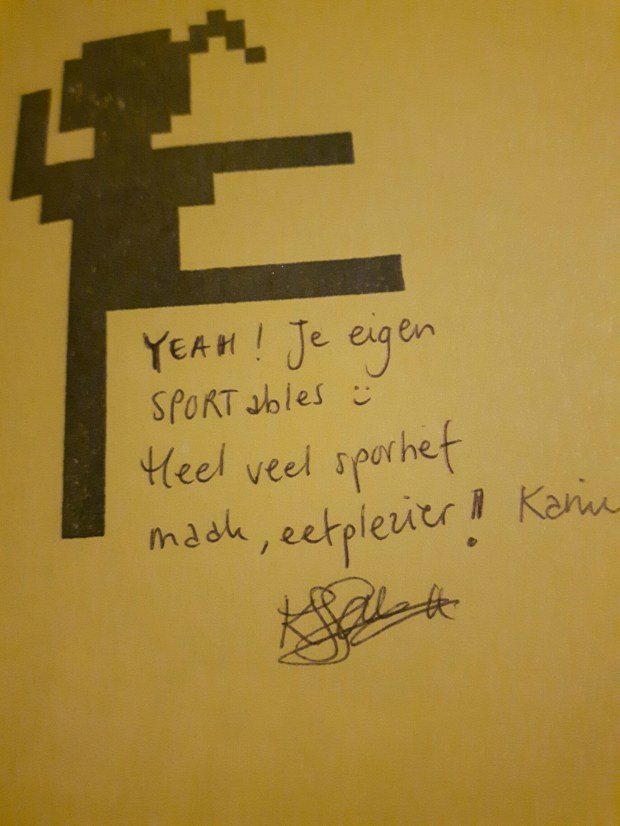 YEAH! Je eigen
SPORTables :)
Heel veel sporhef
maak, eetplezier!! Karin